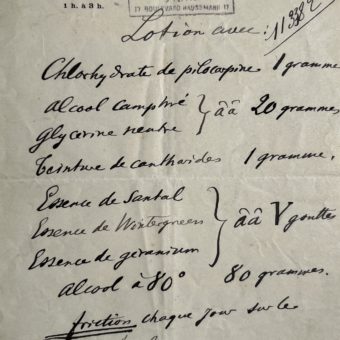 1 h. à 3 h.
17 BOULEVARD HAUSSMANN 17
Lotion avec :
Chlorhydrate de pilocarpine 1 gramme
Alcool camphré
Glycerine neutre
ââ 20 grammes
Teinture de cantharides 1 gramme.
Essence de Santal
Essence de Wintergreen
Essence de géranium
ââ V gouttes
Alcool à 80° 80 grammes.
friction chaque jour sur le